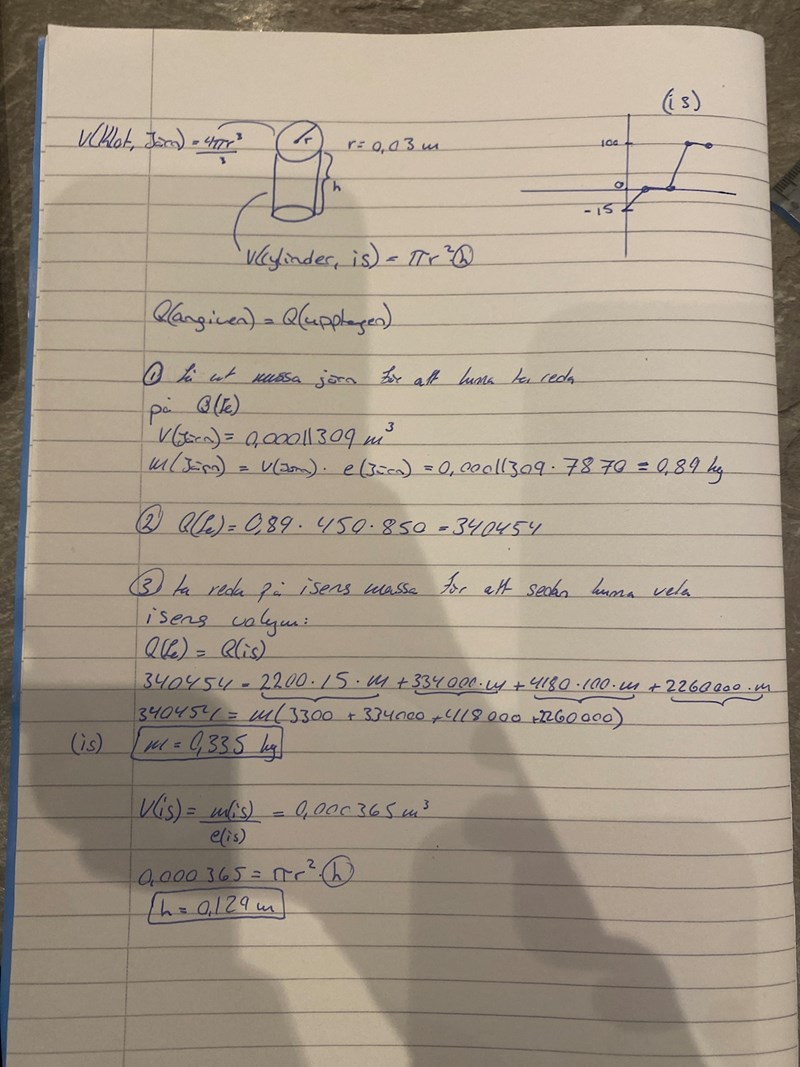 (is)
V(Klot, Järn) = 4πr³/3
r
r = 0,03 m
h
100
0
-15
V(cylinder, is) = πr²·h
Q(angiven) = Q(upptagen)
① Få ut massa järn för att kunna ta reda
på Q(Fe)
V(Järn) = 0,00011309 m³
m(Järn) = V(Järn) · ρ(Järn) = 0,00011309 · 7870 = 0,89 kg
② Q(Fe) = 0,89 · 450 · 850 = 340454
③ ta reda på isens massa för att sedan kunna veta
isens volym:
Q(Fe) = Q(is)
340454 = 2200·15·m + 334000·m + 4180·100·m + 2260000·m
340454 = m(3300 + 334000 + 418000 + 2260000)
(is) m = 0,335 kg
V(is) = m(is)/ρ(is) = 0,000365 m³
0,000365 = πr²·h
h = 0,129 m